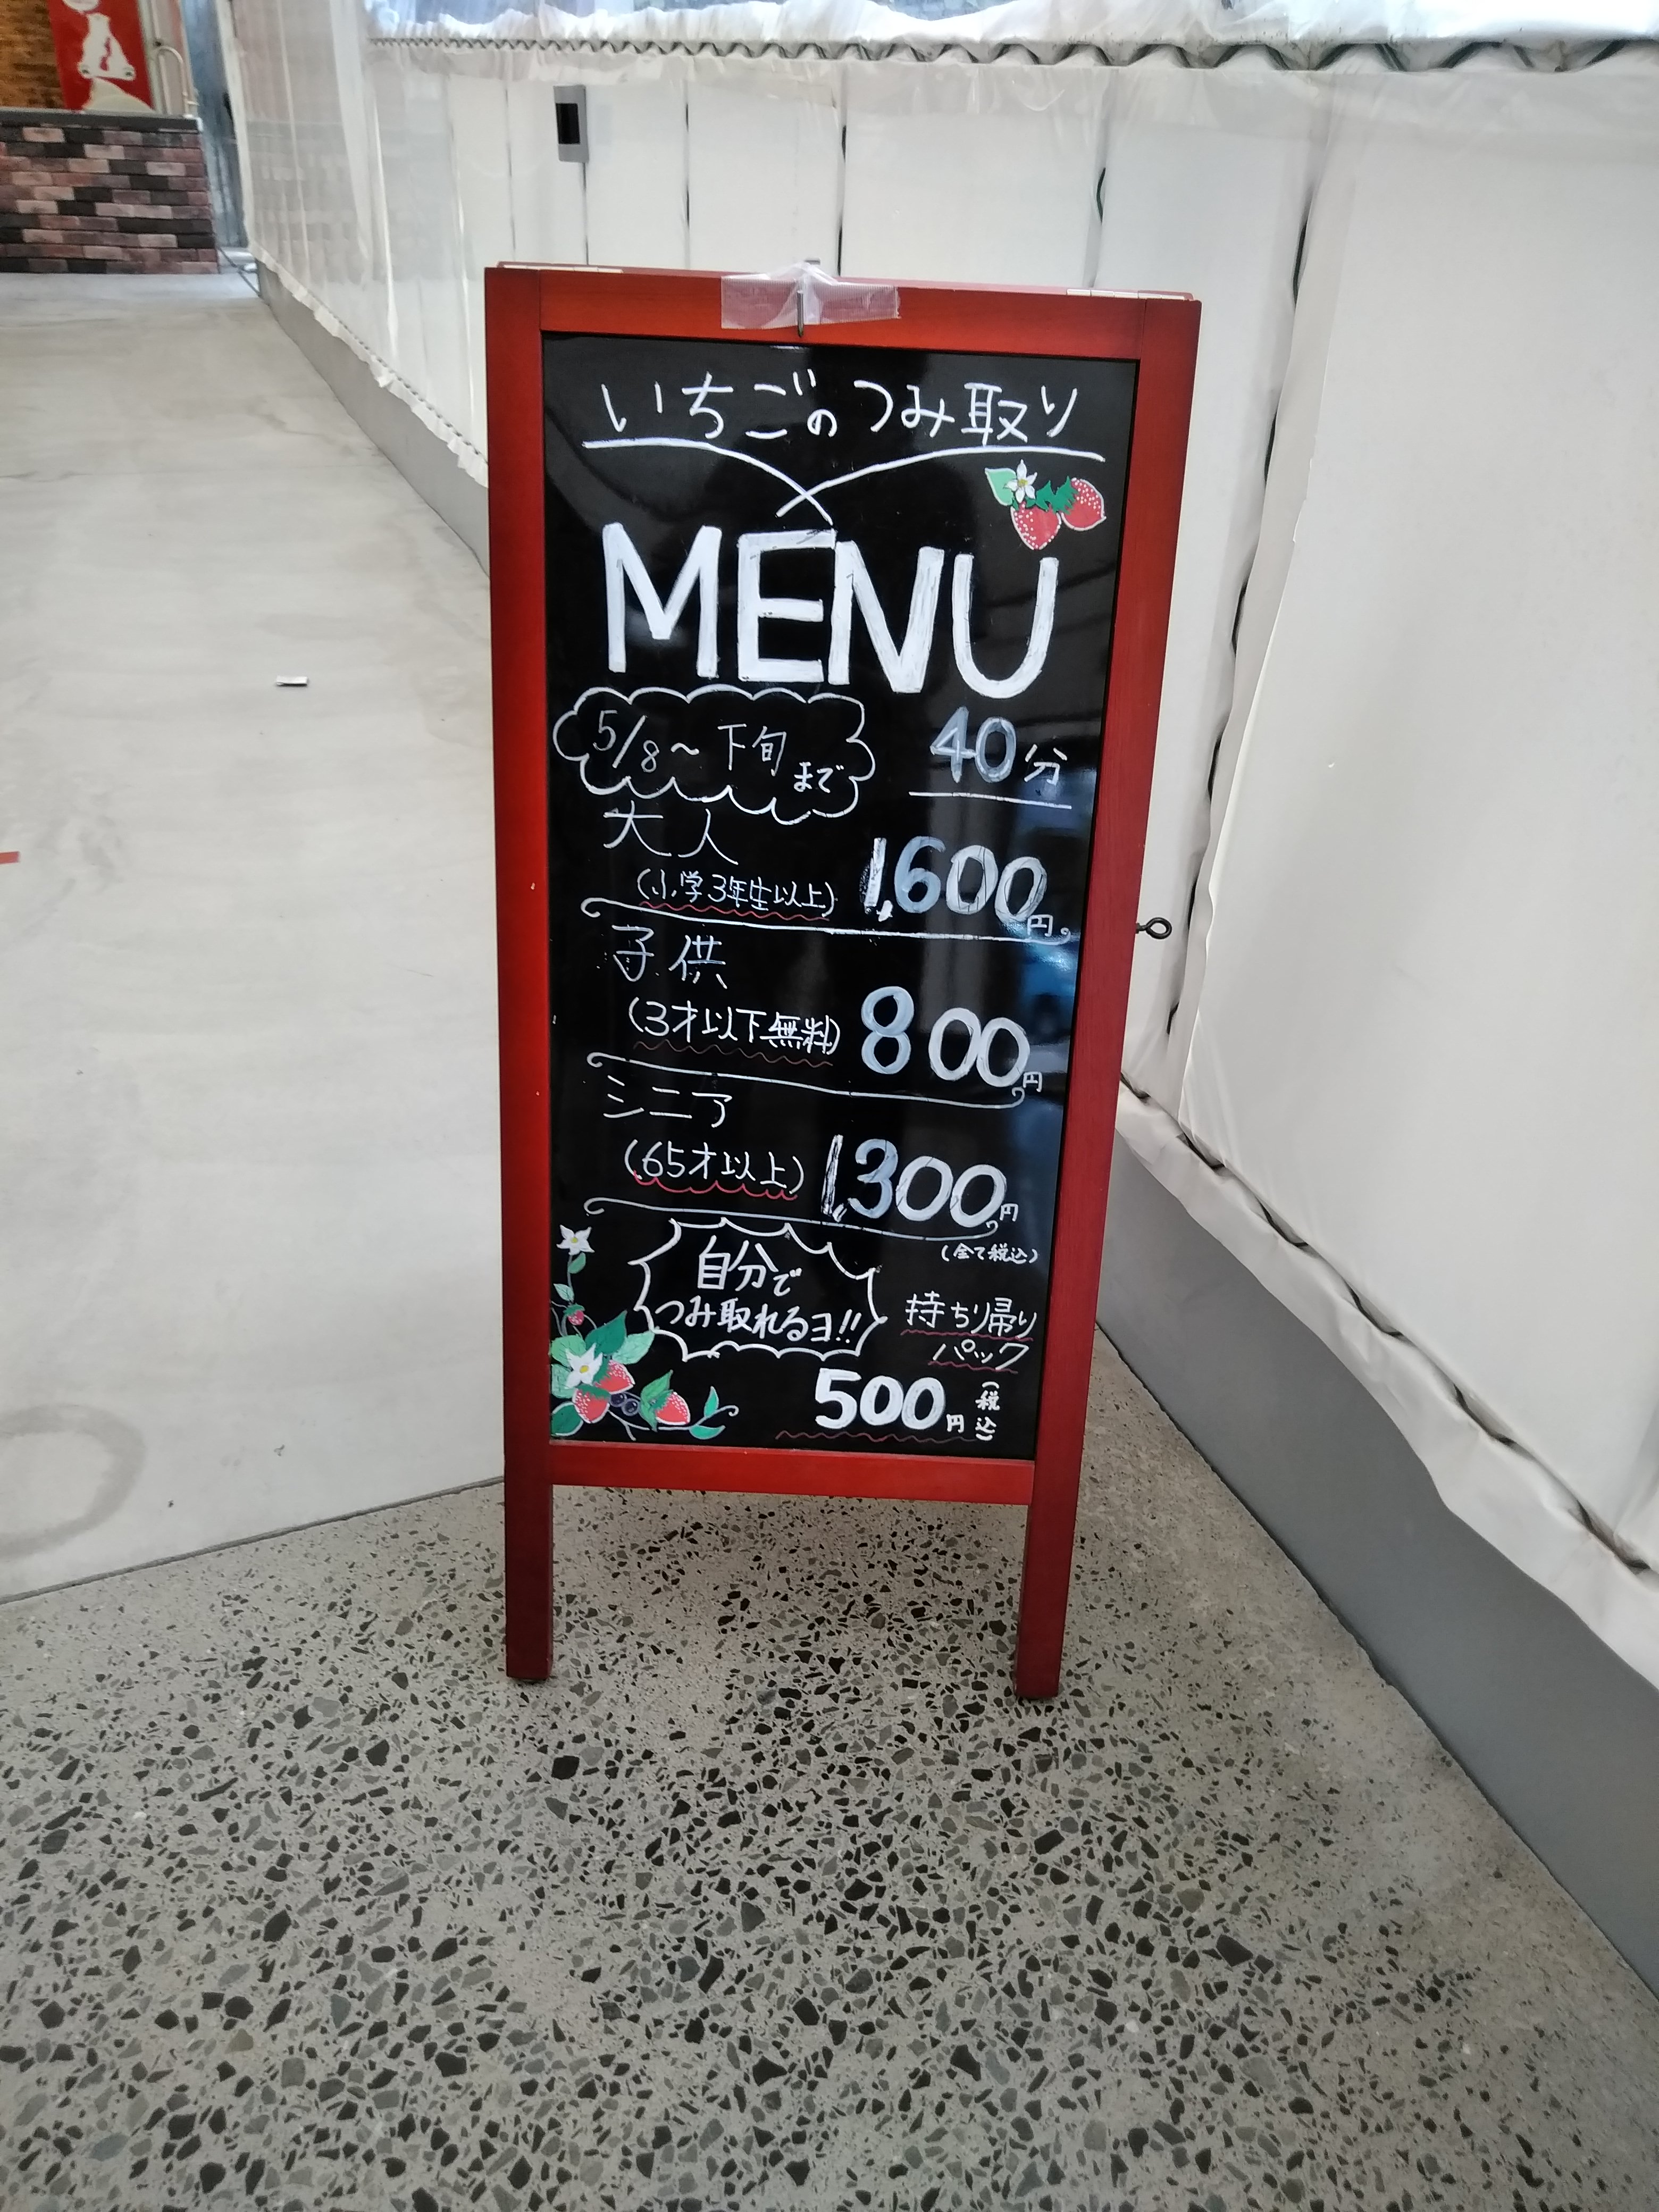 いちごのつみ取り
MENU
5/8～下旬まで
40分
大人
(小学3年生以上) 1,600円
子供
(3才以下無料) 800円
シニア
(65才以上) 1,300円
(全て税込)
自分で
つみ取れるヨ!!
持ち帰り
パック
500円(税込)